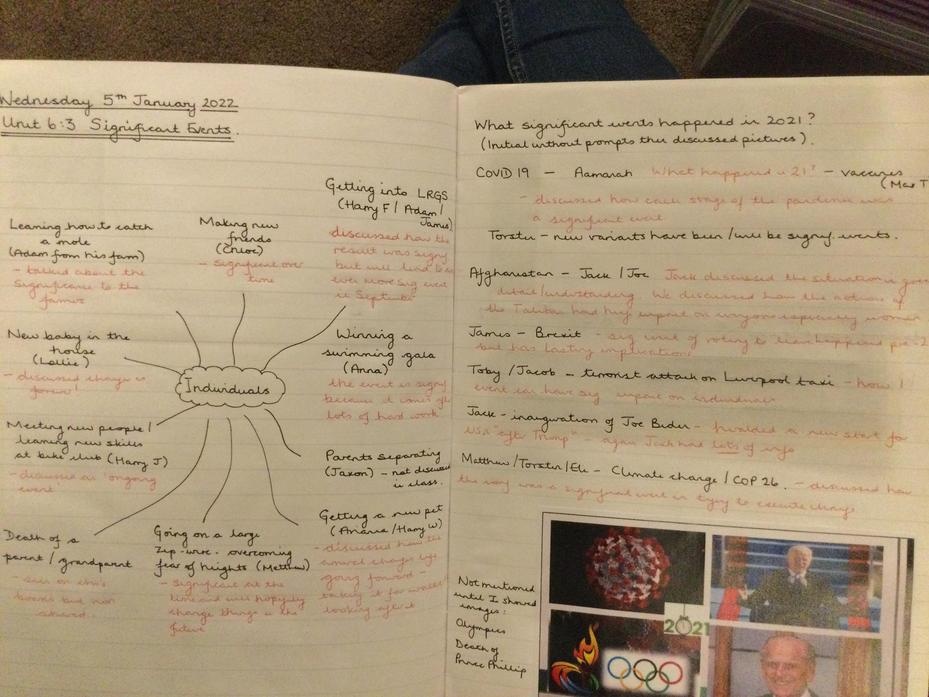 Wednesday 5th January 2022
Unit 6:3 Significant Events.
Getting into LRGS
(Harry F / Adam /
James)
discussed how the
result was signif
but will lead to
even more sig event
in September
Learning how to catch
a mole
(Adam from his farm)
- talked about the
significance to the
farmer
Making new
friends
(Chloe)
- significant over
time
New baby in the
house
(Lollie)
- discussed change is
forever
Individuals
Winning a
swimming gala
(Anna)
the event is signif
because it comes after
lots of hard work
Meeting new people /
learning new skills
at bike club (Harry J)
- discussed as 'ongoing
event'
Parents separating
(Jaxon) - not discussed
in class.
Death of a
parent / grandparent
boards but not
shared.
Going on a large
zip-wire - overcoming
fear of heights (Matthew)
- significant at the
time and will hopefully
change things in the
future
Getting a new pet
(Ariana / Harry W)
- discussed how the
going forward -
looking after it
What significant events happened in 2021?
(Initial without prompts then discussed pictures).
COVID 19 - Aamarah What happened in 21? - vaccines
(Max T
- discussed how each stage of the pandemic was
a significant event
Torsten - new variants have been / will be signif. events.
Afghanistan - Jack / Joe Jack discussed the situation in great
detail / understanding. We discussed how the actions of
the Taliban had huge impact on everyone especially women
James - Brexit - sig event of voting to leave happened pre-2
but has lasting implications
Toby / Jacob - terrorist attack on Liverpool taxi - how 1
event can have sig impact on individuals
Jack - inauguration of Joe Biden - heralded a new start for
USA "after Trump" - again Jack had lots of info
Matthew / Torsten / Ele - Climate change / COP 26. - discussed how
the was a significant event in trying to execute change
Not mentioned
until I showed
images:
Olympics
Death of
Prince Phillip
2021